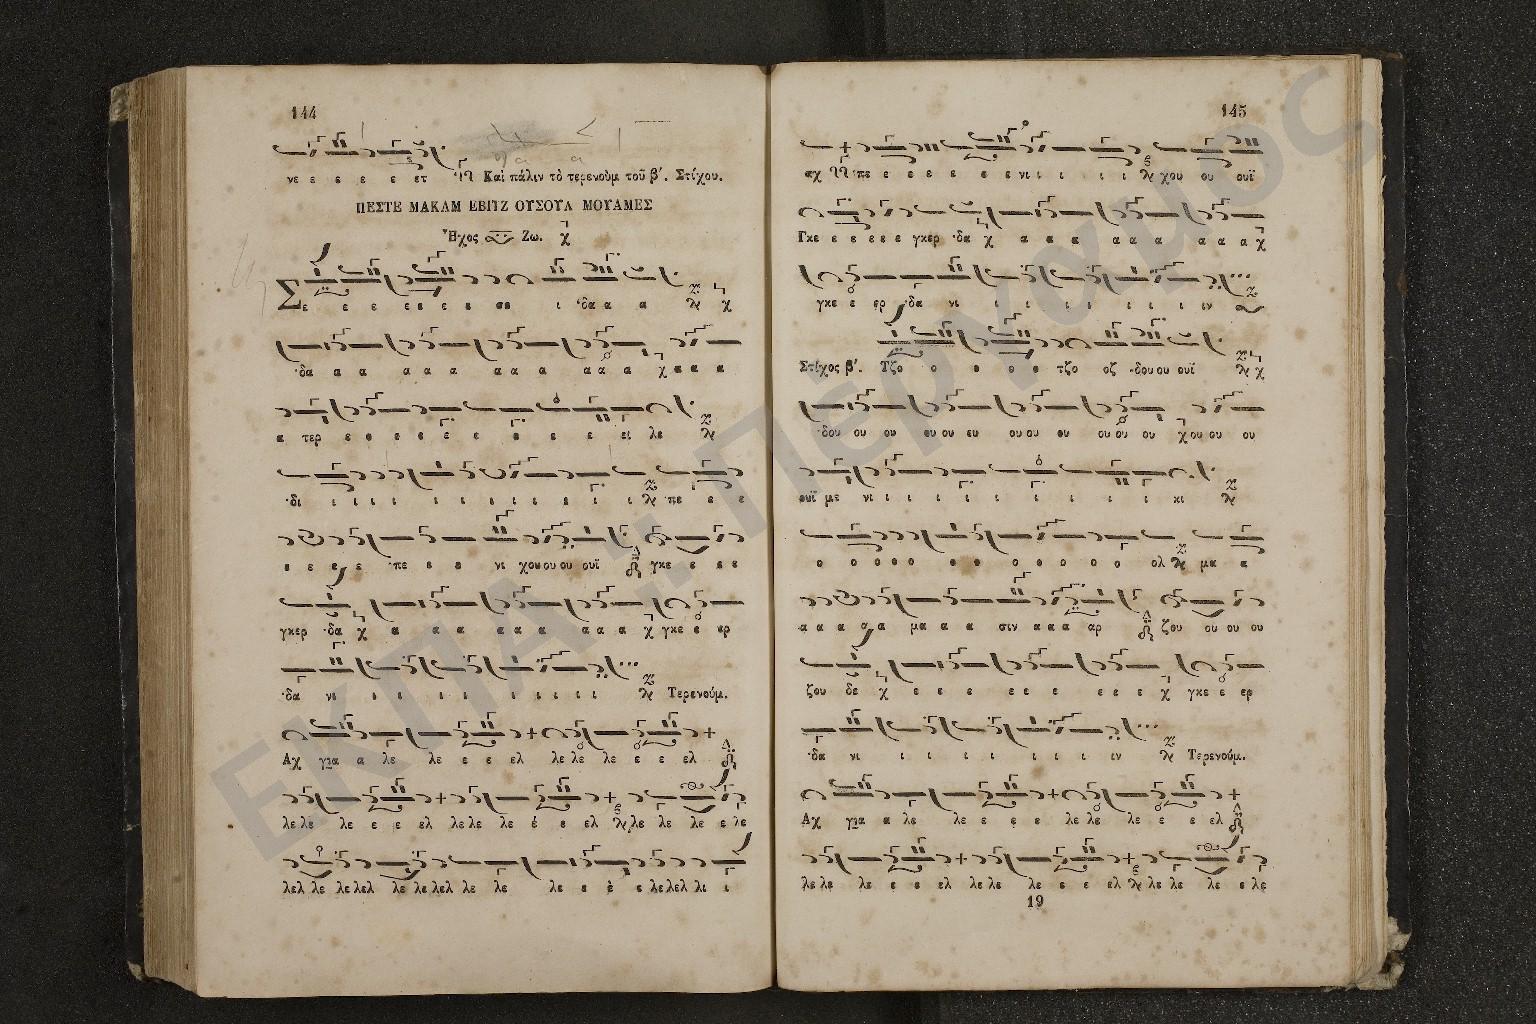 144
νε ε ε ε ε ετ Καὶ πάλιν τὸ τερενοὺμ τοῦ β΄. Στίχου.
ΠΕΣΤΕ ΜΑΚΑΜ ΕΒΙΤΖ ΟΥΣΟΥΛ ΜΟΥΑΜΕΣ
Ἦχος Ζω.
Σε ε ε ε ε ε ε σε ι ·δα α α α
·δα α α α α α α α α α α α α α α
α τερ ε ε ε ε ε ε ε ε ει λε
·δι ι ι ι ι ι ι ι ι ι ε ι ι πε ε ε
ε ε ε ε ·πε ε ε νι χου ου ου ουϊ γκε ε ε ε
γκερ ·δα α α α α α α α α α γκε ε ερ
·δα νι ι ι ι ι ι ι ι Τερενούμ.
Αχ για α λε λε ε ε ελ λε λε λε ε ε ελ
λε λε λε ε ε ελ λε λε λε ε ε ελ λε λε λε ε λε
λελ λε λε λελ λε λε λελ λε λε λε ε ε ε λε λελ λι ι
145
αχ πε ε ε ε ε ε ε νι ι ι ι ι χου ου ουϊ
Γκε ε ε ε ε ε γκερ ·δα α α α α α α α α α
γκε ε ερ ·δα νι ι ι ι ι ι ι ι ιν
Στίχος β΄. Τζο ο ο ο ο τζο οζ ·δου ου ουϊ
·δου ου ου ου ου ου ου ου ου ου ου ου ου ου ου
ουϊ με νι ι ι ι ι ι ι ι ι ι κι
ο ο ο ο ο ο ο ο ο ο ο ο ολ μα α
α α α α α μα α α σιν α α α αρ ζου ου ου ου
ζου δε ε ε ε ε ε ε ε ε ε γκε ε ερ
·δα νι ι ι ι ι ι ι ιν Τερενούμ.
Αχ για α λε λε ε ε ε λε λε λε ε ε ελ
λε λε λε ε ε ελ λε λε λε ε ε ελ λε λε λε ε λε
19
ΕΚΠΑ - Περγαμος